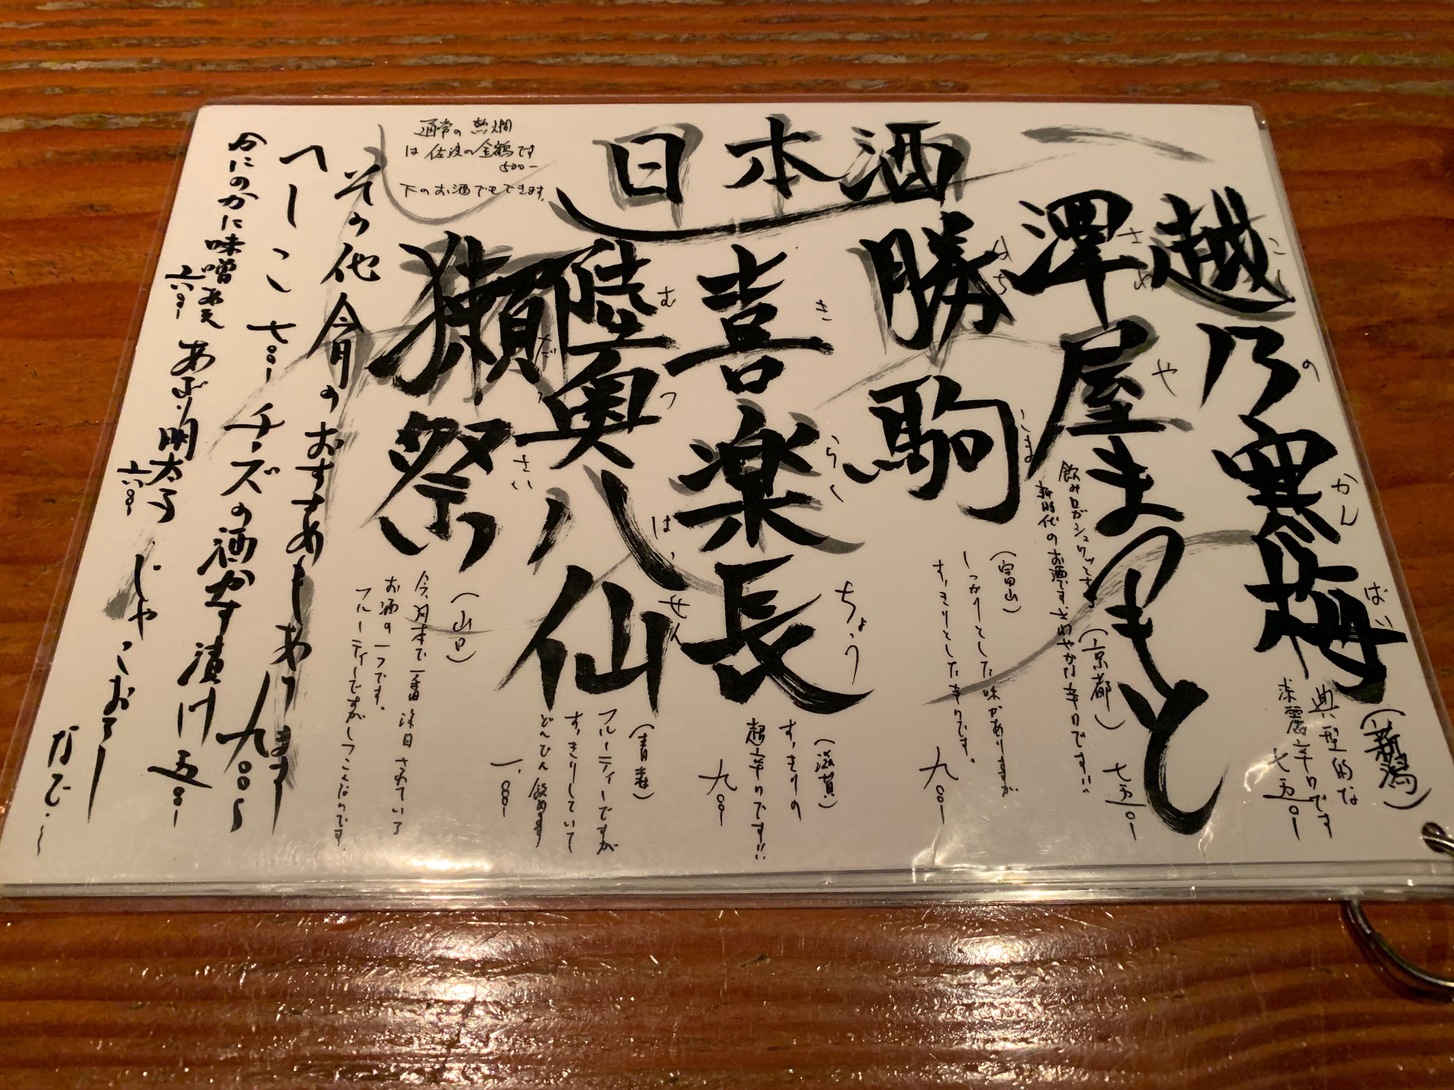 日本酒
通常の熱燗
は佐渡の金鶴です
500-
下のお酒でもできます。
越乃寒梅
こしのかんばい
(新潟)
典型的な
淡麗辛口です
七五〇-
澤屋まつもと
さわや
(京都)
飲み口がシュワッとする
新時代のお酒です。さわやかな辛口です!!
七五〇-
勝駒
かちこま
(富山)
しっかりとした味がありますが
すっきりとした辛口です。
九〇〇-
喜楽長
きらくちょう
(滋賀)
すっきりの
超辛口です!!
九〇〇-
陸奥八仙
むつはっせん
(青森)
フルーティーですが
すっきりしていて
どんどん飲めます
一、〇〇〇-
獺祭
だっさい
(山口)
今、日本で一番注目されている
お酒の一つです。
フルーティーですがしつこくないのです。
その他今月のおすすめもあります
九〇〇~
へしこ 七〇〇- チーズの酒かす漬け 五〇〇-
かにのかに味噌和え 六八〇- あぶり明太子 六八〇- じゃこおろし
などー